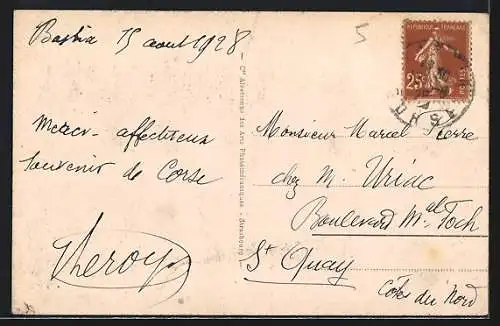 Bastia 15 août 1928
5
RÉPUBLIQUE FRANÇAISE
25c
POSTES
merci - affectueux
souvenir de Corse
Cie Alsacienne des Arts Photomécaniques - Strasbourg
Monsieur Marcel Pierre
chez M. Uriac
Boulevard Mal Foch
St Quay
Côtes du Nord